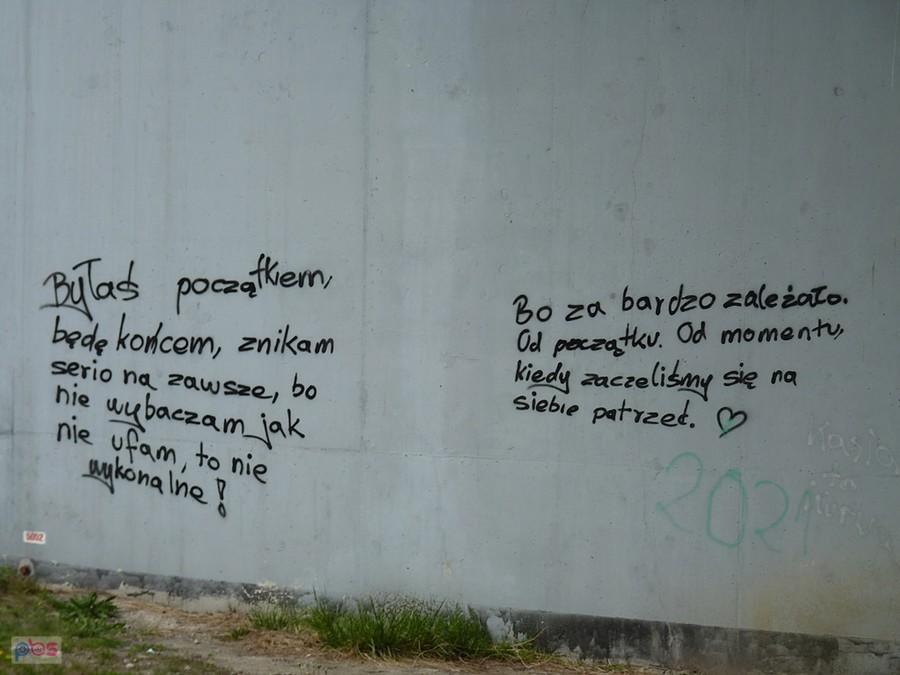 Byłaś początkiem,
będę końcem, znikam
serio na zawsze, bo
nie wybaczam jak
nie ufam, to nie
wykonalne!
Bo za bardzo zależało.
Od początku. Od momentu,
kiedy zaczeliśmy się na
siebie patrzeć. ♡
2021
5002
pbs